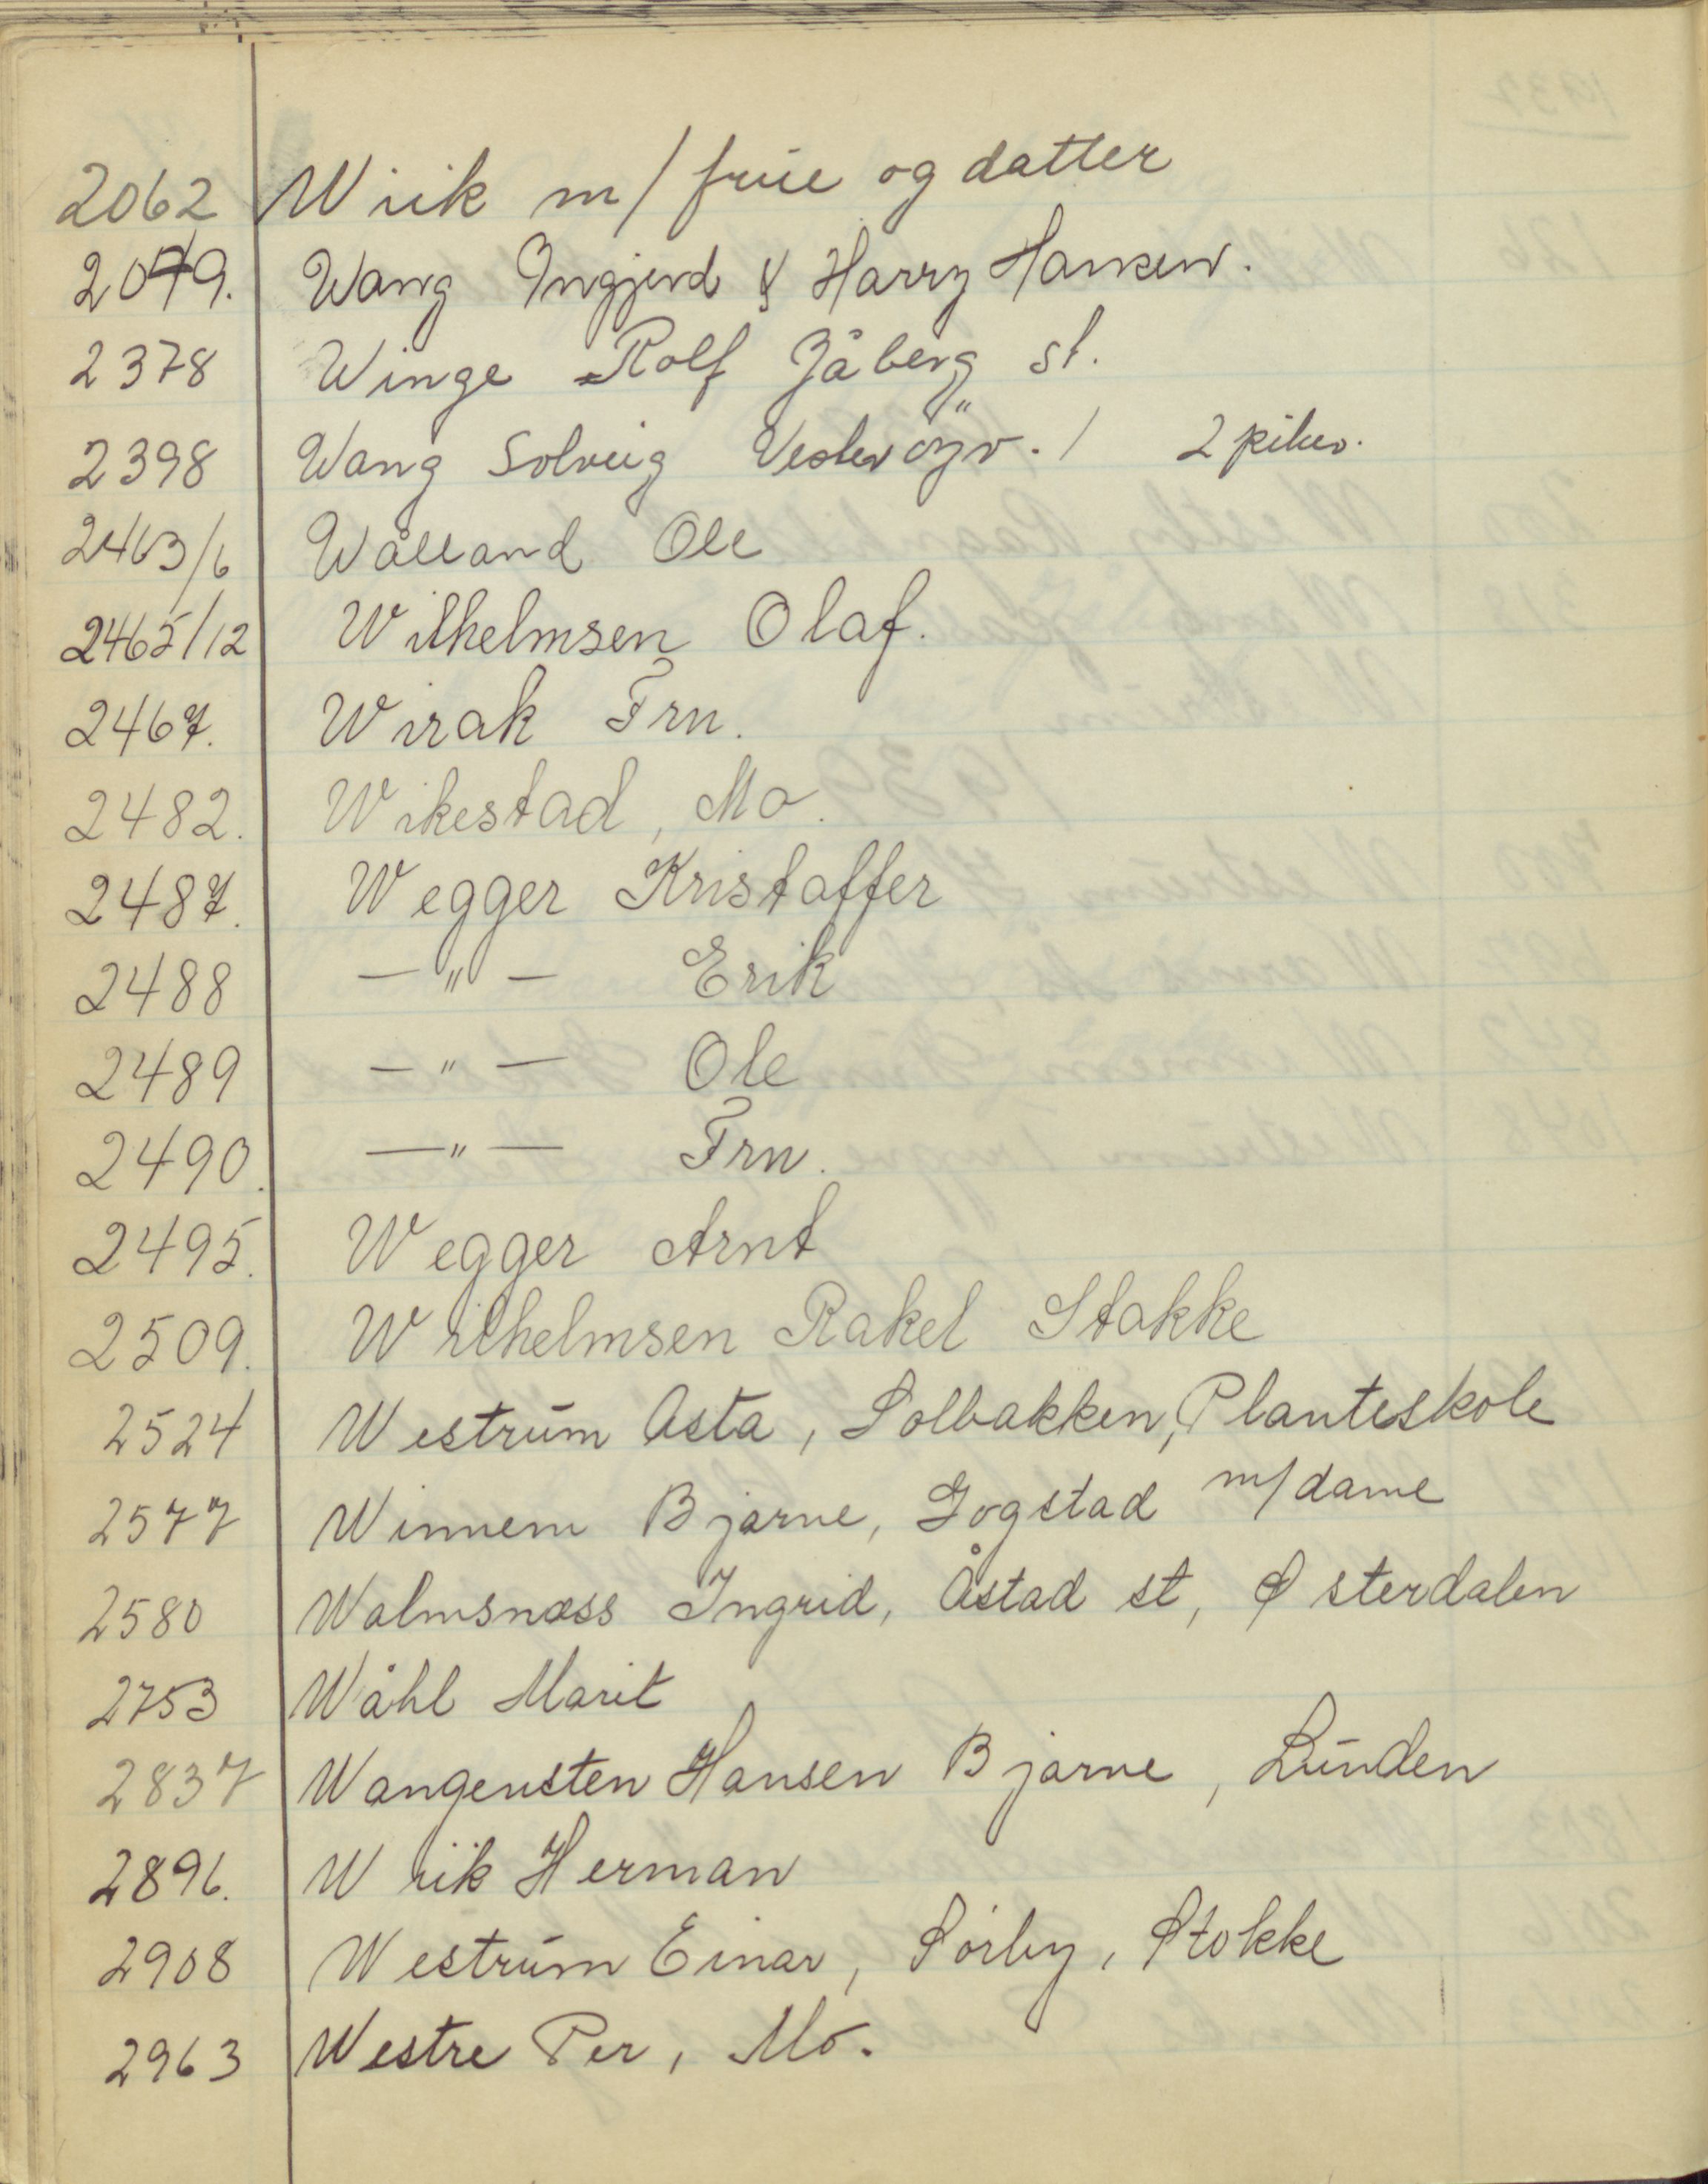 2062 Wiik m/ frue og datter
2079. Wang Ingjerd & Harry Hansen.
2378 Winge Rolf Jåberg st.
2398 Wang Solveig Vesterøyv. / 2 piker.
2463/6 Wålland Ole
2465/12 Wilhelmsen Olaf.
2467. Wirak Frn.
2482. Wikestad, Mo.
2487. Wegger Kristoffer
2488 — " — Erik
2489 — " — Ole
2490. — " — Frn.
2495. Wegger Arnt
2509. Wilhelmsen Rakel Stokke
2524 Westrum Asta, Solbakken, Planteskole
2577 Winnem Bjarne, Gogstad m/dame
2580 Walmsnæss Ingrid, Åstad st, Østerdalen
2753 Wåhl Marit
2837 Wangensten Hansen Bjarne, Lunden
2896. Wiik Herman
2908 Westrum Einar, Sørby, Stokke
2963 Westre Per, Mo.